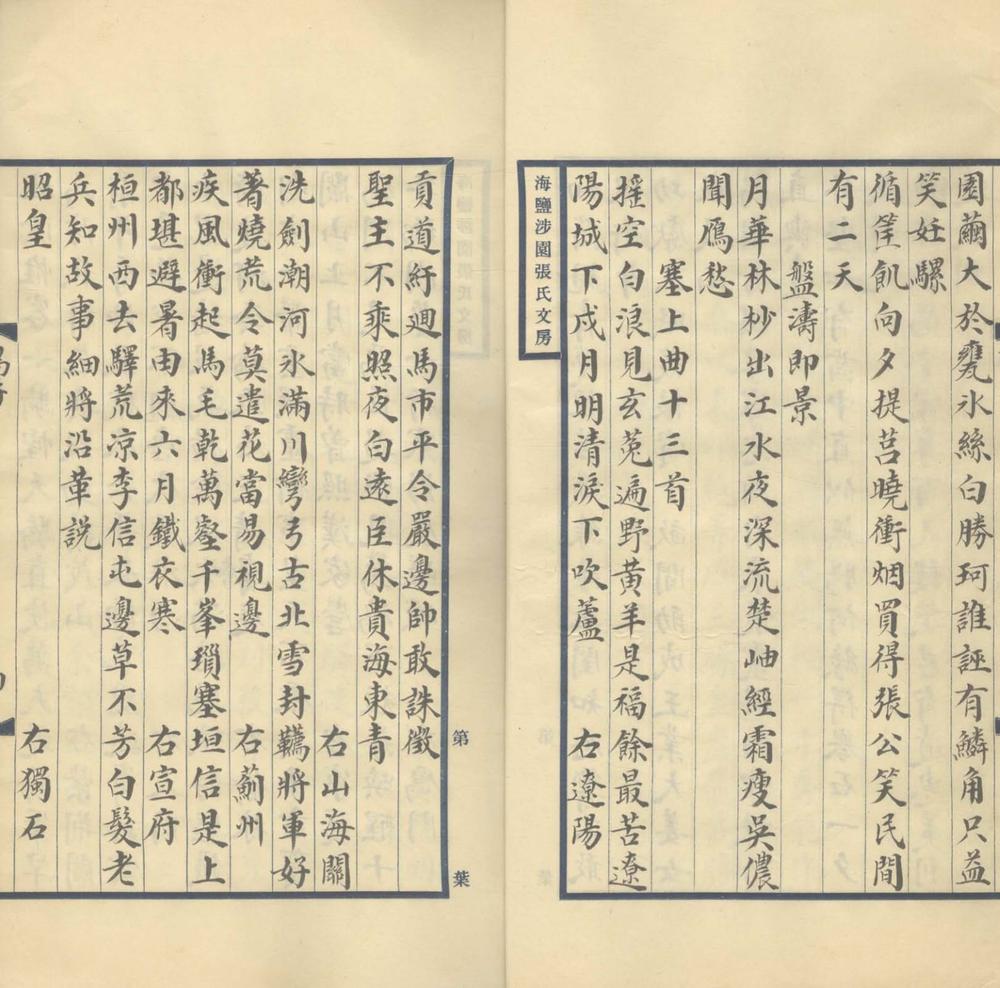 園繭大於甕氷絲白勝珂誰誣有鱗角只益
笑妊騾
循筐飢向夕提莒曉衝烟買得張公笑民間
有二天
盤濤即景
月華林杪出江水夜深流楚岫經霜瘦吳儂
聞鴈愁
塞上曲十三首
摇空白浪見玄菟遍野黃羊是福餘最苦遼
陽城下戍月明清淚下吹蘆 右遼陽
海鹽涉園張氏文房
貢道紆迴馬市平令嚴邊帥敢誅徵
聖主不乘照夜白遠臣休貴海東青
右山海關
洗劍潮河氷滿川彎弓古北雪封韉將軍好
著燒荒令莫遣花當易視邊 右薊州
疾風衝起馬毛乾萬壑千峯瑣塞垣信是上
都堪避暑由來六月鐵衣寒 右宣府
桓州西去驛荒凉李信屯邊草不芳白髮老
兵知故事細將沿革説
昭皇 右獨石
第 葉